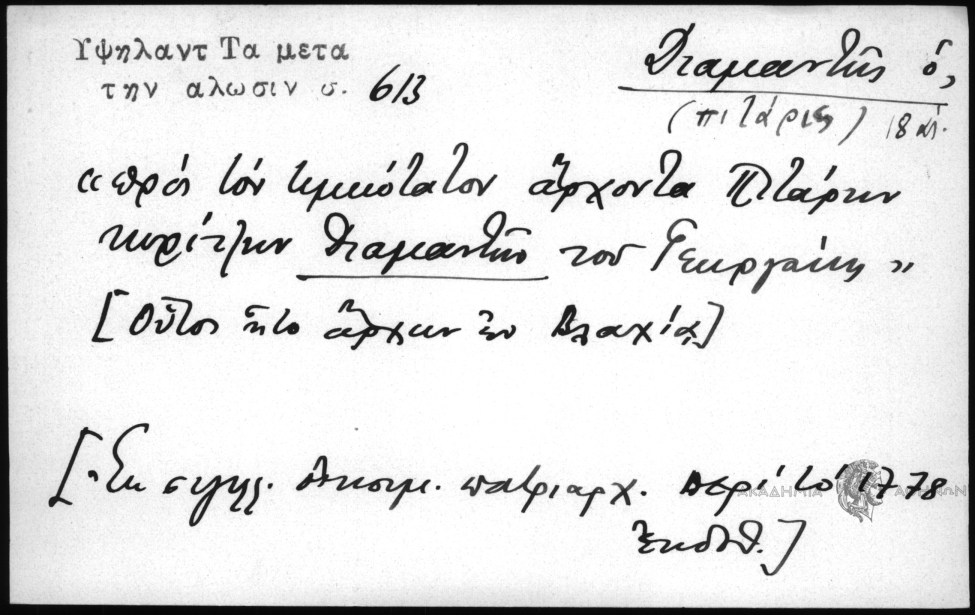 Υψηλαντ Τα μετα
την αλωσιν σ. 613
Διαμαντῆς ὁ,
(πιτάρις) 18 αἰ.
«πρὸς τὸν τιμιώτατον ἄρχοντα Πιτάρην
κυρίτζην Διαμαντῆν τοῦ Γεωργάκη»
[Οὗτος ἦτο ἄρχων ἐν Βλαχίᾳ]
[Ἐκ σιγιλλ. πατριαρχ. περὶ τὸ 1778
ἐκδοθ.]
ΑΚΑΔΗΜΙΑ ΑΘΗΝΩΝ